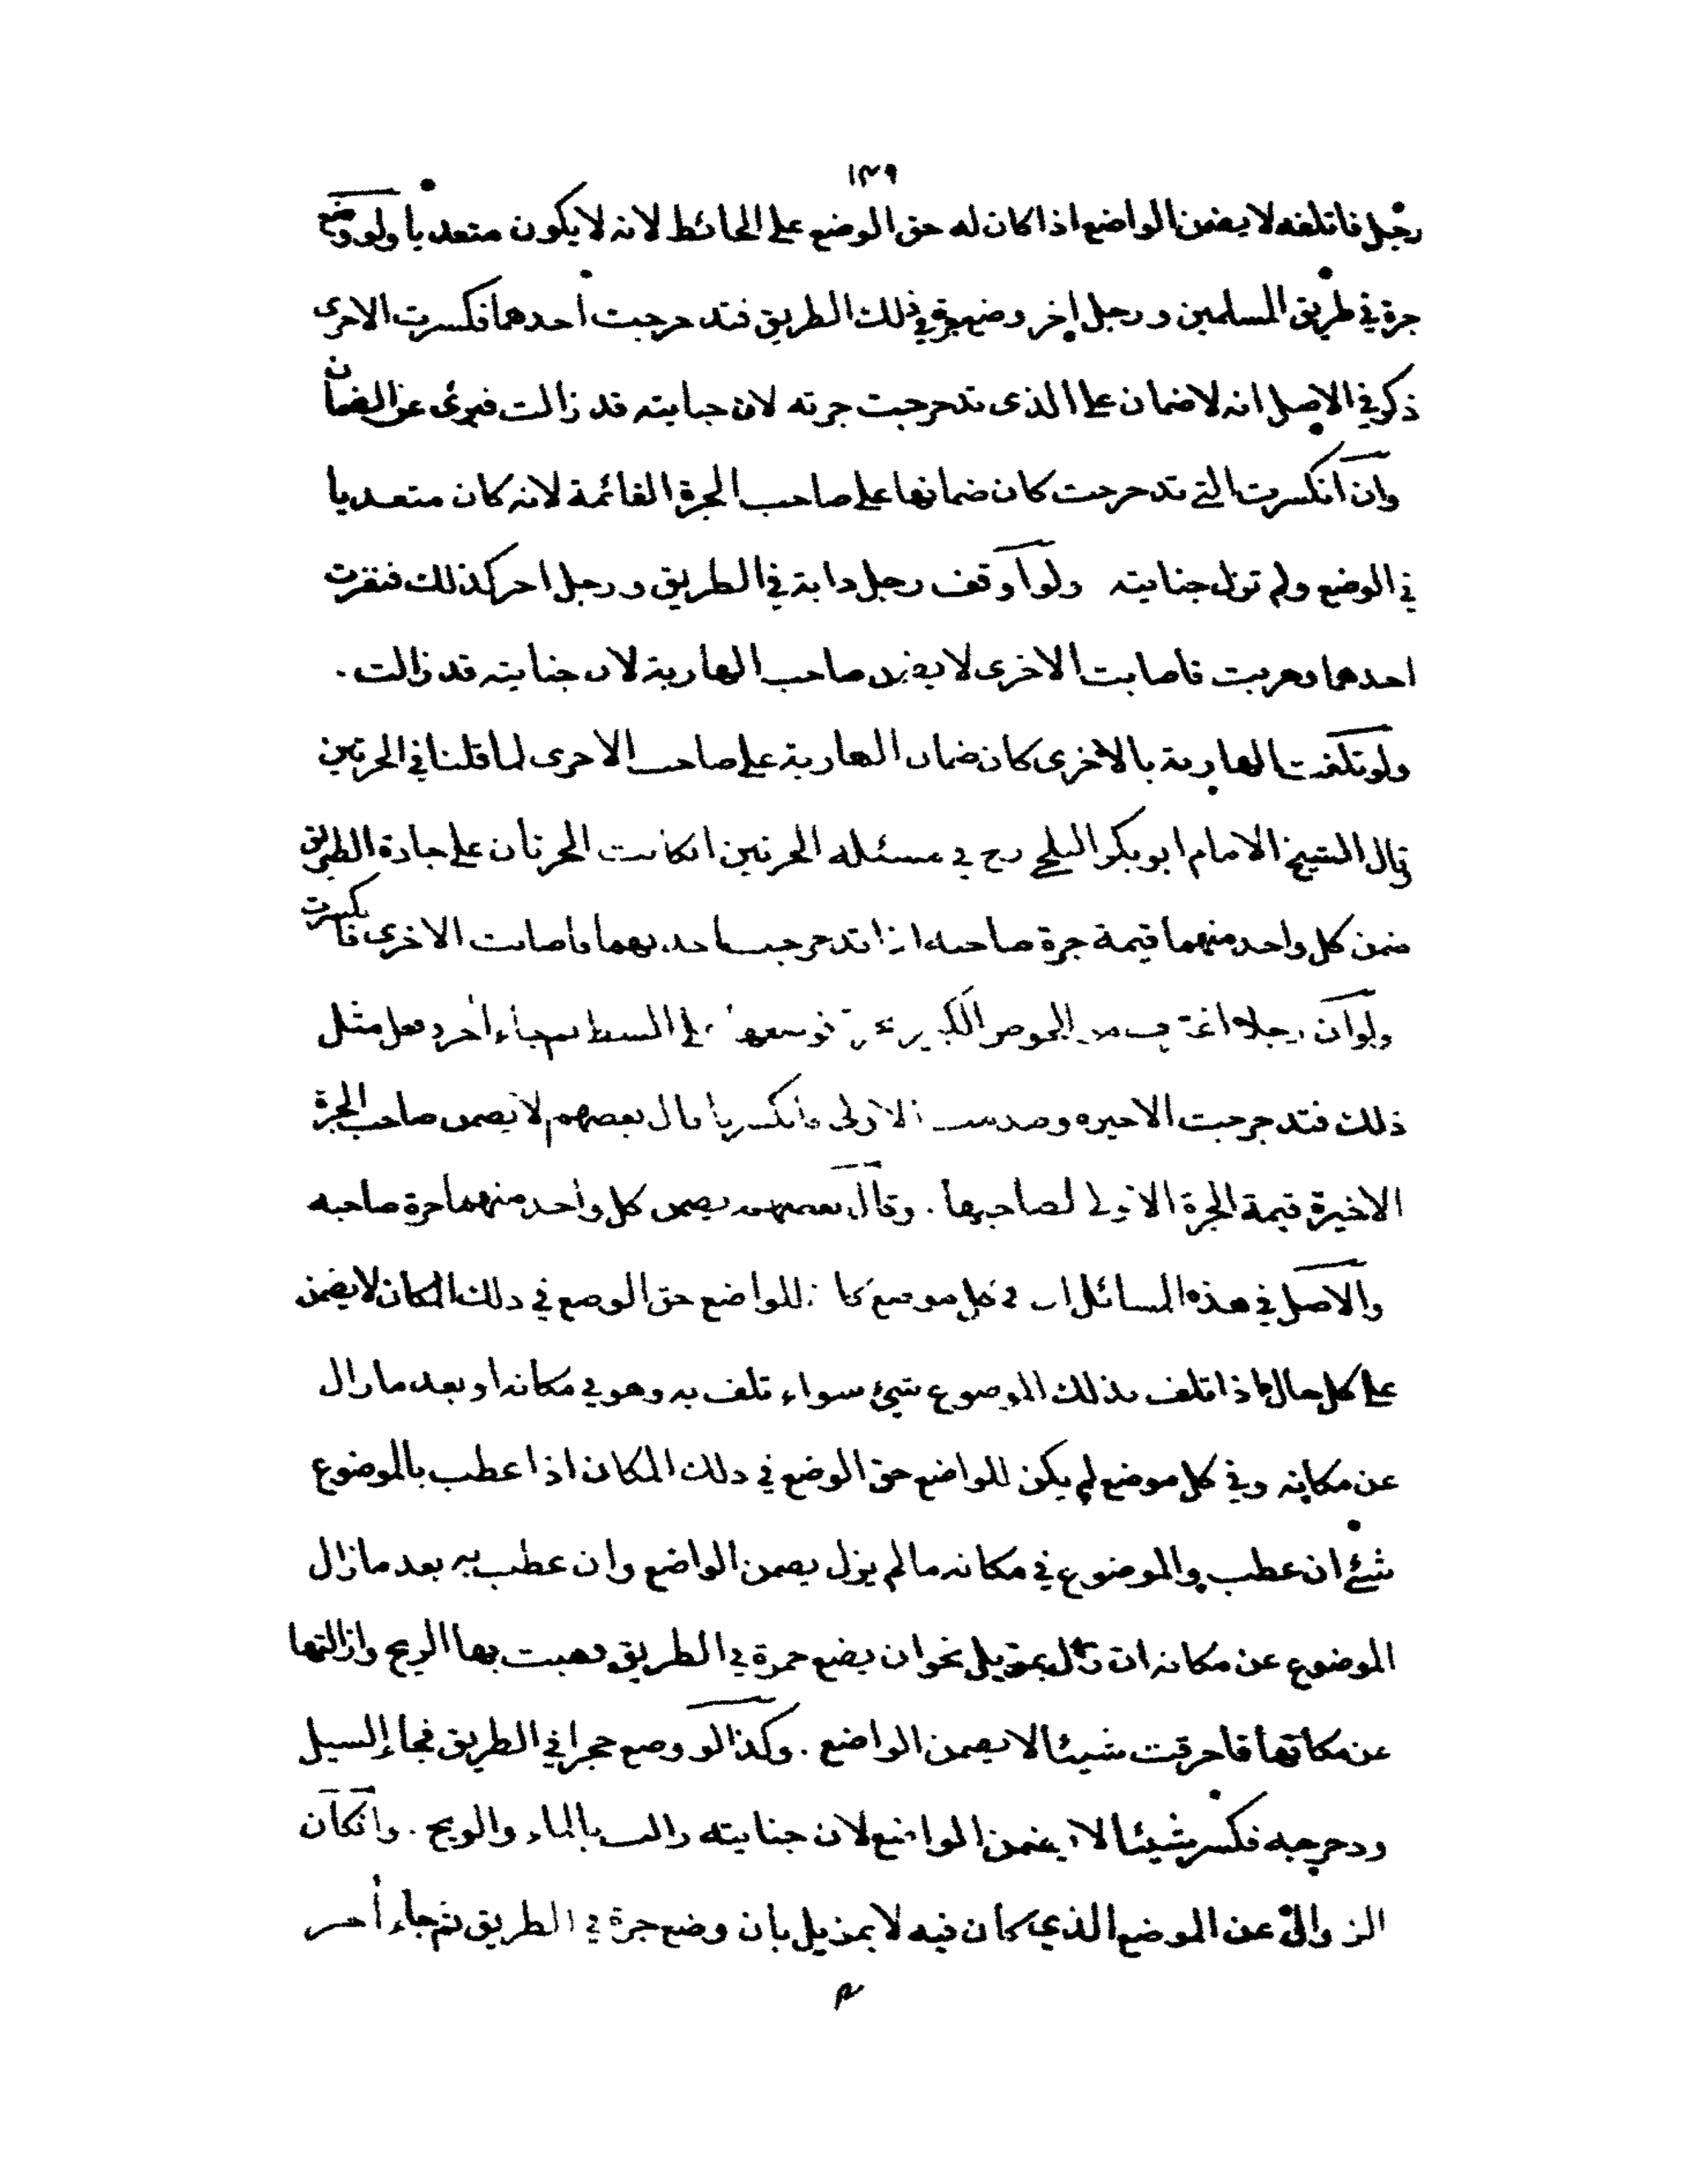 ١٣٩
رجل فاتلفه لا يضمن الواضع اذا كان له حق الوضع على الحائط لانه لا يكون متعديا ولو وضع
جرة في طريق المسلمين و رجل اخر وضع جرة في ذلك الطريق فتدحرجت احدهما فكسرت الاخرى
ذكر في الاصل انه لا ضمان على الذى تدحرجت جرته لان جنايته قد زالت فبرئ عن الضمان
وان انكسرت التي تدحرجت كان ضمانها على صاحب الجرة القائمة لانه كان متعديا
في الوضع ولم تزل جنايته ولو اوقف رجل دابة في الطريق و رجل اخر كذلك فنفرت
احدهما وهربت فاصابت الاخرى لا يضمن صاحب الهاربة لان جنايته قد زالت .
ولو تلفت الهاربة بالاخرى كان ضمان الهاربة على صاحب الاخرى لما قلنا في الجرتين
قال الشيخ الامام ابو بكر البلخي رح في مسئله الجرتين انكانت الجرتان على جادة الطريق
ضمن كل واحد منهما قيمة جرة صاحبه اذا تدحرجت احدىهما فاصابت الاخرى فانكسرت
ولو ان رجلا اغترف من الحوض الكبير بجرة فوضعها على الشط ثم جاء اخر وفعل مثل
ذلك فتدحرجت الاخيره وصدمت الاولى فانكسرتا قال بعضهم لا يضمن صاحب الجرة
الاخيرة قيمة الجرة الاولى لصاحبها . وقال بعضهم يضمن كل واحد منهما جرة صاحبه
والاصل في هذه المسائل ان في كل موضع كان للواضع حق الوضع في ذلك المكان لا يضمن
على كل حال اذا تلف بذلك الموضوع شيئ سواء تلف به وهو في مكانه او بعد ما زال
عن مكانه وفي كل موضع لم يكن للواضع حق الوضع في ذلك المكان اذا عطب بالموضوع
شئ ان عطب والموضوع في مكانه ما لم يزل يضمن الواضع وان عطب به بعد ما زال
الموضوع عن مكانه ان زال بمزيل نحو ان يضع جمرة في الطريق فهبت بها الريح وازالتها
عن مكانها فاحرقت شيئا لا يضمن الواضع . وكذا لو وضع حجرا في الطريق فجاء السيل
ودحرجه فكسر شيئا لا يضمن الواضع لان جنايته زالت بالماء والريح . وانكان
الزوال عن الموضع الذي كان فيه لا بمزيل بان وضع جرة في الطريق ثم جاء أخر